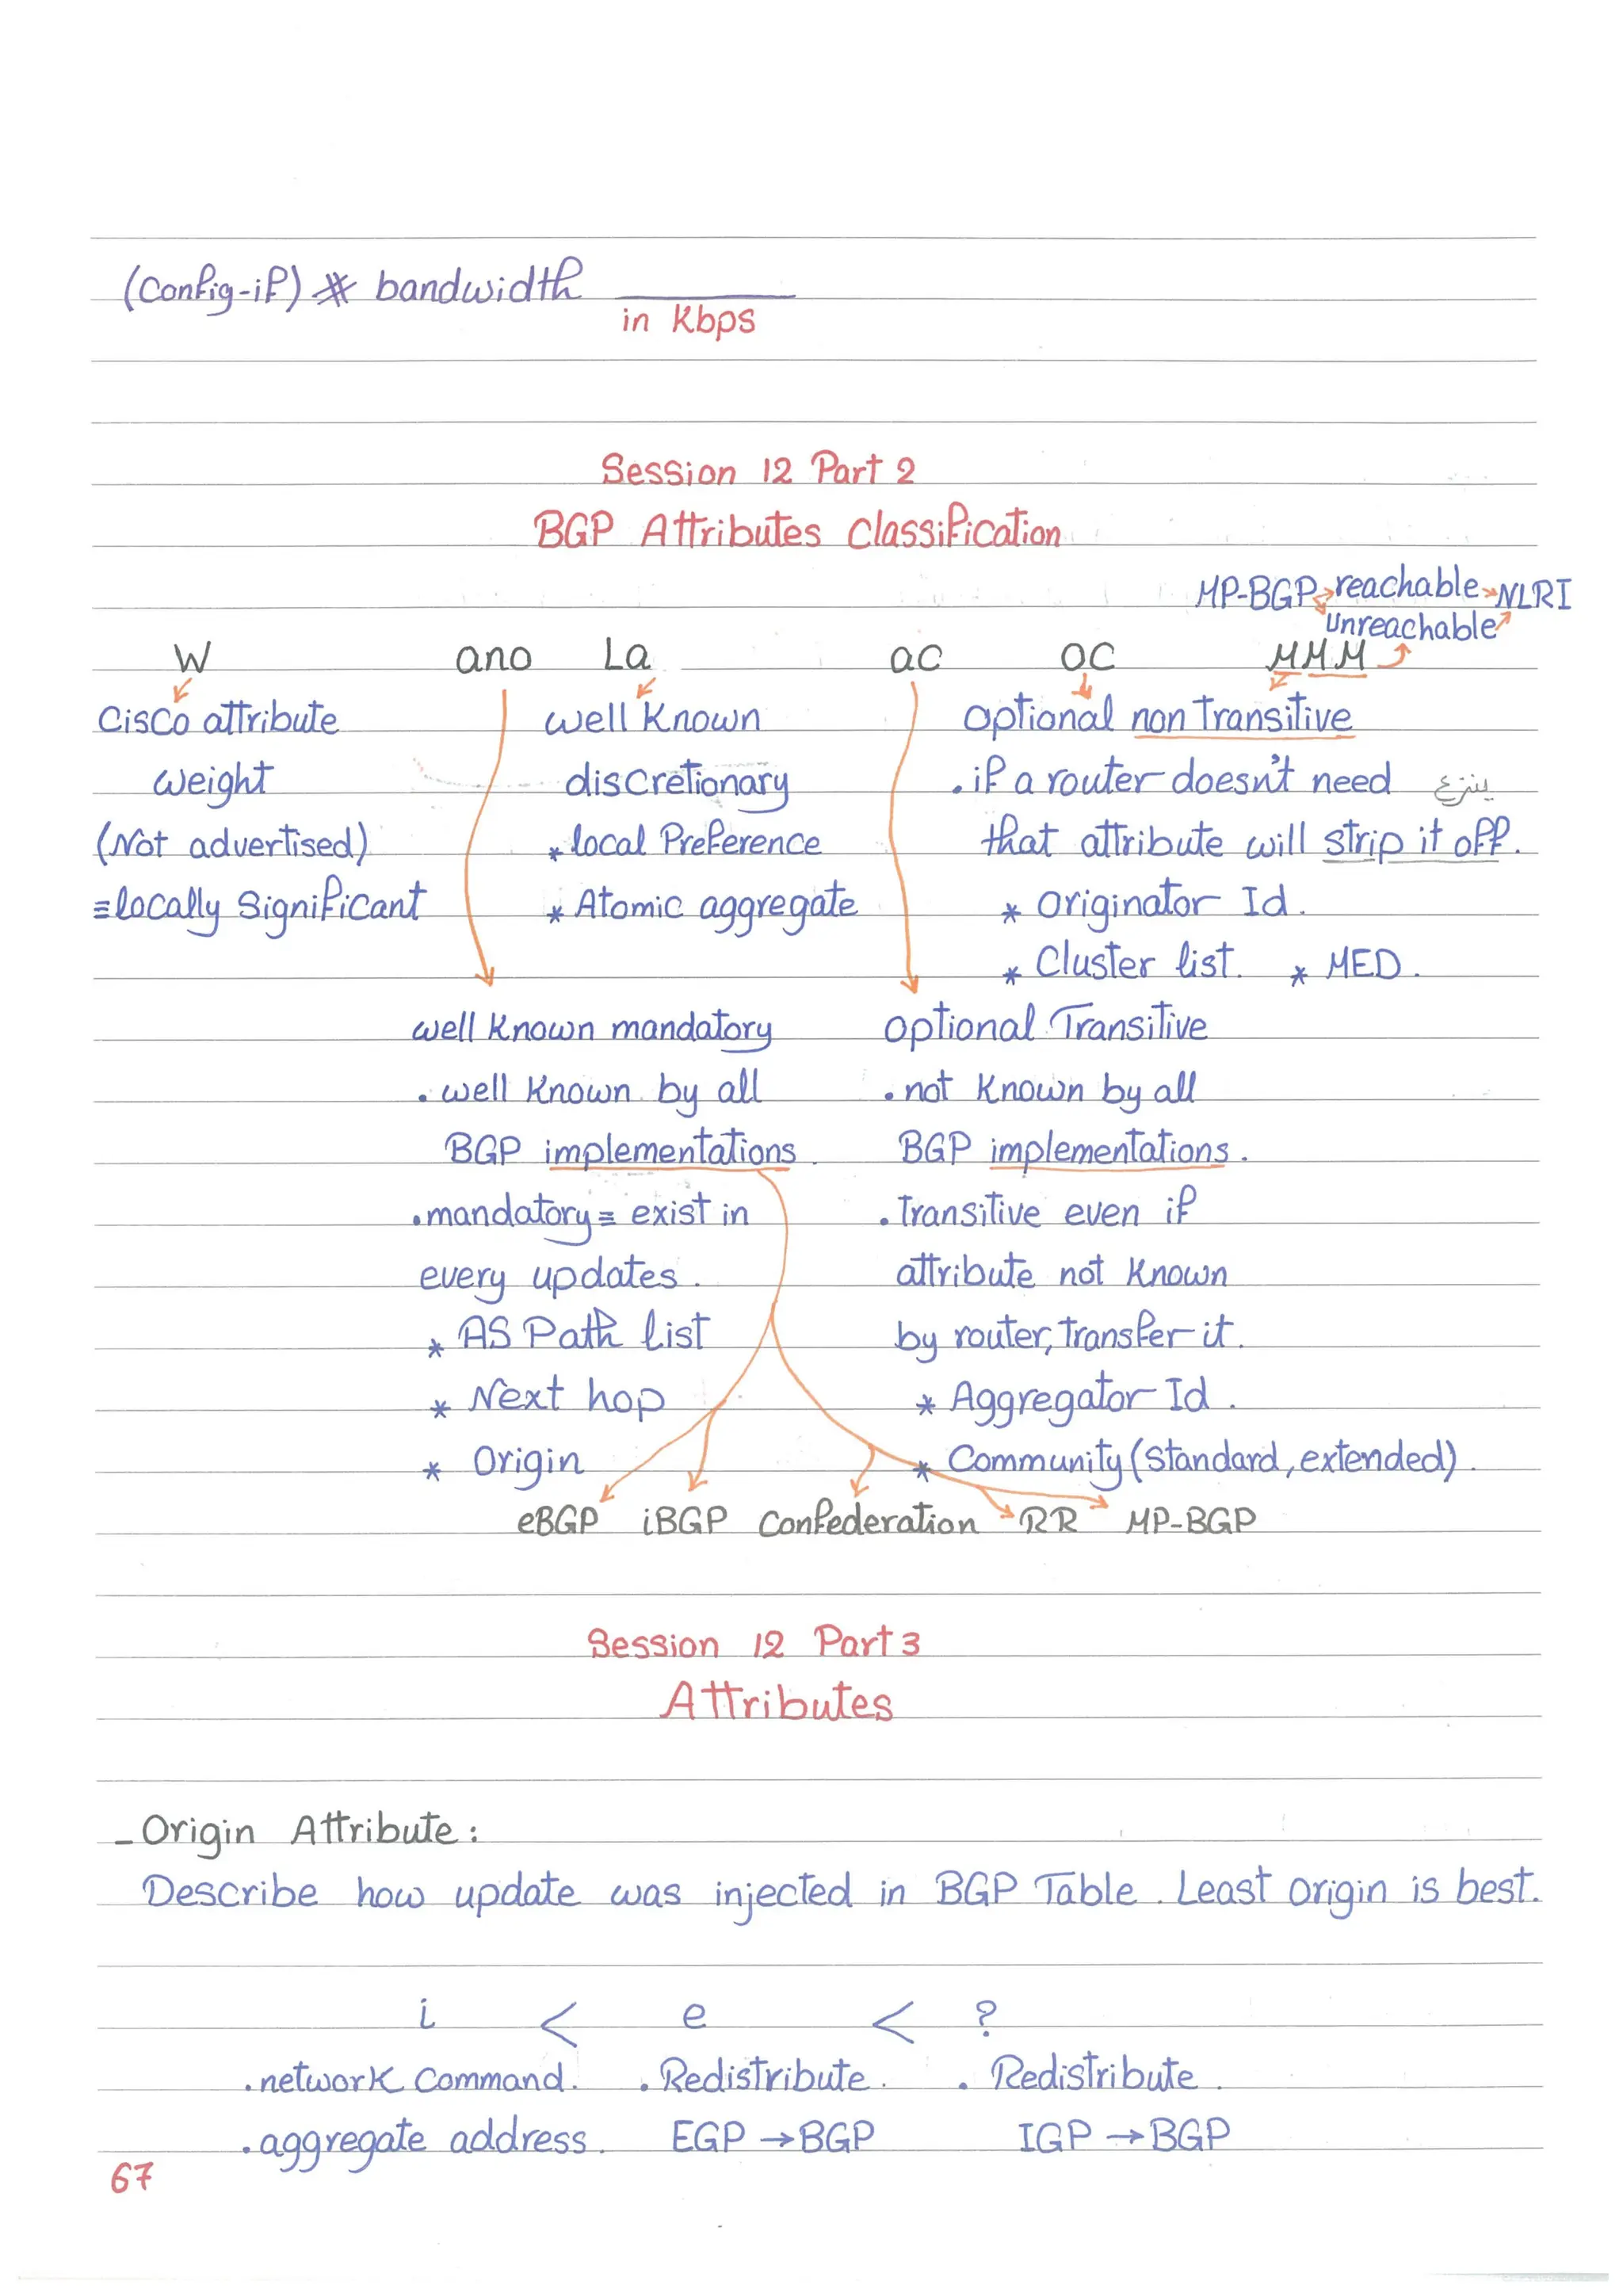 (Config-if) # bandwidth ________
in Kbps
Session 12 Part 2
BGP Attributes Classification
MP-BGP reachable NLRI
Unreachable
W ano La ac oc MMM
Cisco attribute
weight
(Not advertised)
≡ locally Significant
well Known
discretionary
* local Preference
* Atomic aggregate
optional non Transitive
. if a router doesn't need ينزع
that attribute will strip it off.
* originator Id.
* Cluster list. * MED.
well Known mandatory
. well Known by all
BGP implementations.
. mandatory ≡ exist in
every updates.
* AS Path list
* Next hop
* Origin
optional Transitive
. not Known by all
BGP implementations.
. Transitive even if
attribute not Known
by router, transfer it.
* Aggregator Id.
* Community (standard, extended).
eBGP iBGP Confederation RR MP-BGP
Session 12 Part 3
Attributes
- Origin Attribute :
Describe how update was injected in BGP Table. Least origin is best.
i < e < ?
. network Command. . Redistribute. . Redistribute.
. aggregate address. EGP → BGP IGP → BGP
67